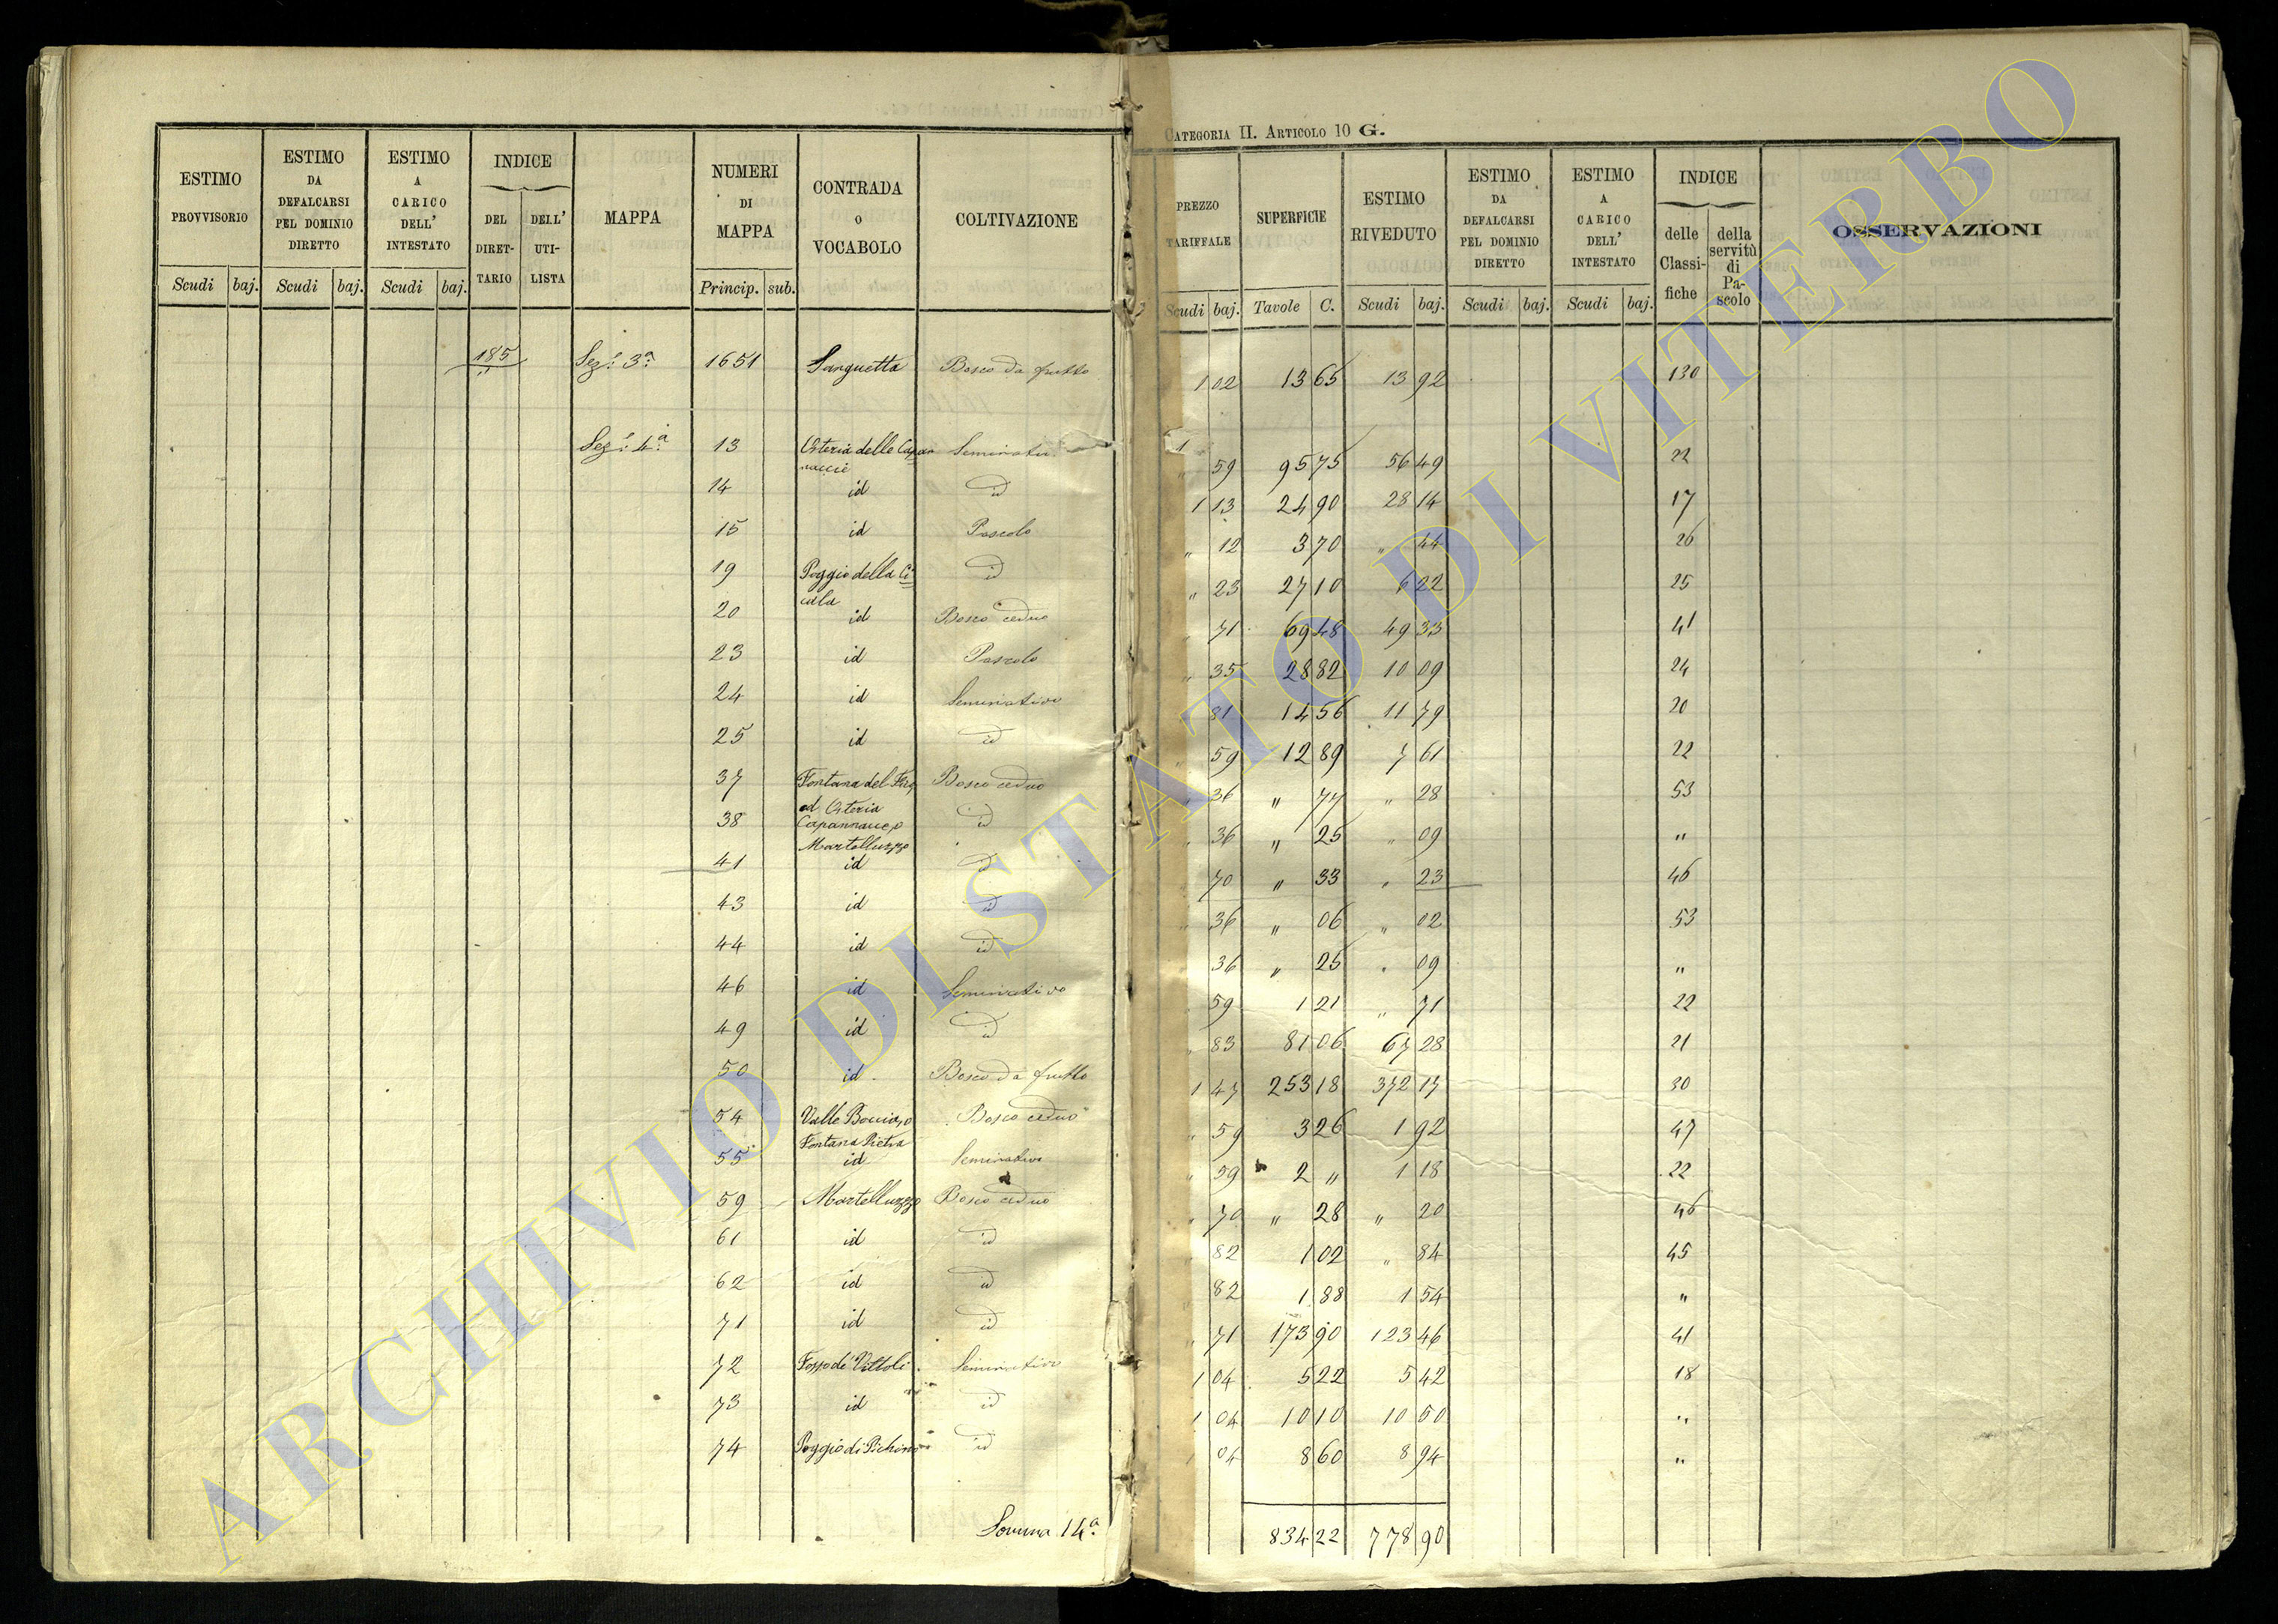 CATEGORIA II. ARTICOLO 10 G.
ESTIMO PROVVISORIO Scudi baj.
ESTIMO DA DEFALCARSI PEL DOMINIO DIRETTO Scudi baj.
ESTIMO A CARICO DELL' INTESTATO Scudi baj.
INDICE DEL DIRET-TARIO DELL' UTI-LISTA
MAPPA
NUMERI DI MAPPA Princip. sub.
CONTRADA o VOCABOLO
COLTIVAZIONE
PREZZO TARIFFALE Scudi baj.
SUPERFICIE Tavole C.
ESTIMO RIVEDUTO Scudi baj.
ESTIMO DA DEFALCARSI PEL DOMINIO DIRETTO Scudi baj.
ESTIMO A CARICO DELL' INTESTATO Scudi baj.
INDICE delle Classi-fiche della servitù di Pa-scolo
OSSERVAZIONI
185 Sez.e 3a 1651 Sanguetta Bosco da frutto 1 02 13 65 13 92 130
Sez.e 4a 13 Osteria delle Capan naccie Seminativo " 59 95 75 56 49 22
14 id id 1 13 24 90 28 14 17
15 id Pascolo " 12 3 70 " 44 26
19 Poggio della Ci cala id " 23 27 10 6 22 25
20 id Bosco ceduo " 71 69 48 49 33 41
23 id Pascolo " 35 28 82 10 09 24
24 id Seminativo " 81 14 56 11 79 20
25 id id " 59 12 89 7 61 22
37 Fontana del Bosco ceduo " 36 " 77 " 28 53
od Osteria
38 Capannacce, o id " 36 " 25 " 09 "
Martelluzzo
41 id id " 70 " 33 " 23 46
43 id id " 36 " 06 " 02 53
44 id id " 36 " 25 " 09 "
46 id Seminativo " 59 1 21 " 71 22
49 id id " 83 81 06 67 28 21
50 id Bosco da frutto 1 47 253 18 372 17 30
54 Valle Bocciar, o Bosco ceduo " 59 3 26 1 92 47
Fontana Pietra
55 id Seminativo " 59 2 " 1 18 22
59 Martelluzzo Bosco ceduo " 70 " 28 " 20 46
61 id id " 82 1 02 " 84 45
62 id id " 82 1 88 1 54 "
71 id id " 71 173 90 123 46 41
72 Fosso de' Vittoli Seminativo 1 04 5 22 5 42 18
73 id id 1 04 10 10 10 50 "
74 Poggio di Pichino id 1 04 8 60 8 94 "
Somma 14a 834 22 778 90
ARCHIVIO DI STATO DI VITERBO